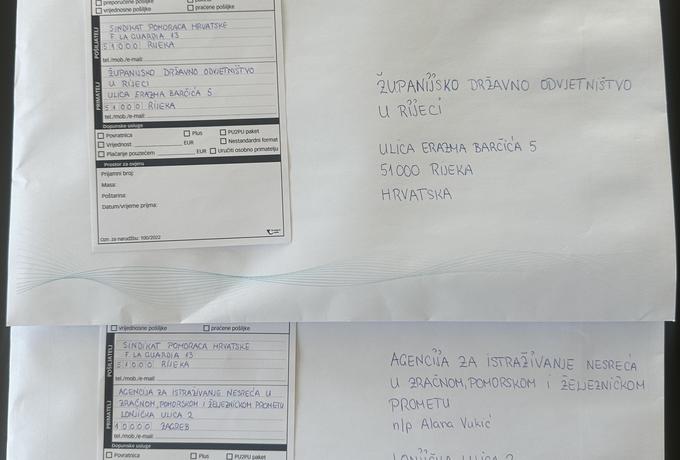 preporučene pošiljke
vrijednosne pošiljke praćene pošiljke
POŠILJATELJ
SINDIKAT POMORACA HRVATSKE
F. LA GUARDIA 13
51000 RIJEKA
tel./mob./e-mail:
PRIMATELJ
ŽUPANIJSKO DRŽAVNO ODVJETNIŠTVO
U RIJECI
ULICA ERAZMA BARČIĆA 5
51000 RIJEKA
tel./mob./e-mail:
Dopunske usluge
Povratnica Plus PU2PU paket
Vrijednost EUR Nestandardni format
Plaćanje pouzećem EUR Uručiti osobno primatelju
Prostor za ovjeru
Prijamni broj:
Masa:
Poštarina:
Datum/vrijeme prijma:
Ozn. za narudžbu: 100/2022
ŽUPANIJSKO DRŽAVNO ODVJETNIŠTVO
U RIJECI
ULICA ERAZMA BARČIĆA 5
51000 RIJEKA
HRVATSKA
vrijednosne pošiljke praćene pošiljke
POŠILJATELJ
SINDIKAT POMORACA HRVATSKE
F. LA GUARDIA 13
51000 RIJEKA
tel./mob./e-mail:
PRIMATELJ
AGENCIJA ZA ISTRAŽIVANJE NESREĆA U
ZRAČNOM, POMORSKOM I ŽELJEZNIČKOM PROMETU
LONJIČKA ULICA 2
10000 ZAGREB
tel./mob./e-mail:
Dopunske usluge
Povratnica Plus PU2PU paket
AGENCIJA ZA ISTRAŽIVANJE NESREĆA
U ZRAČNOM, POMORSKOM I ŽELJEZNIČKOM
PROMETU
n/p Alana Vukić
LONJIČKA ULICA 2